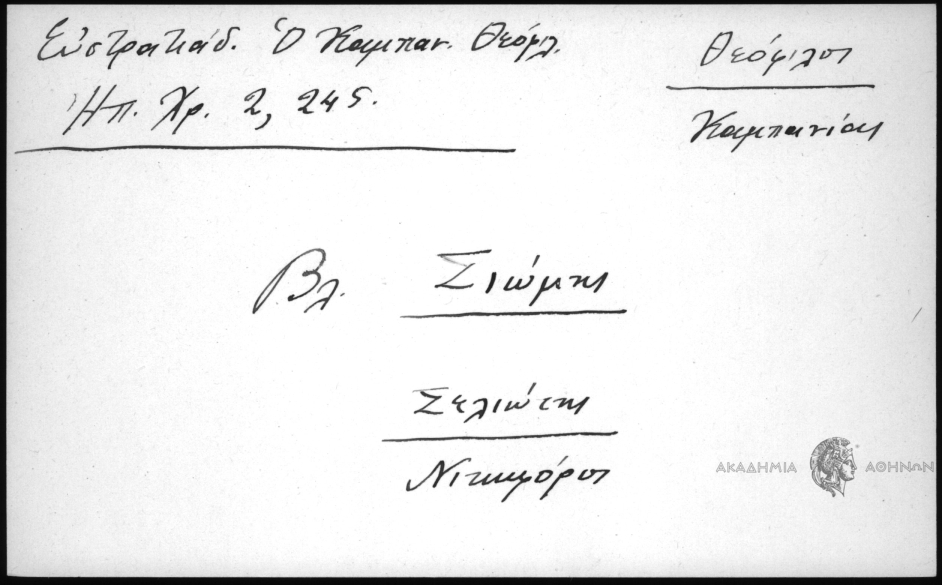 Εὐστρατιάδ. Ὁ Καμπαν. Θεόφιλ.
Ἠπ. Χρ. 2, 245.
Θεόφιλος
Καμπανίας
Βλ. Σιώμης
Σελιώτης
Νικηφόρος
ΑΚΑΔΗΜΙΑ ΑΘΗΝΩΝ